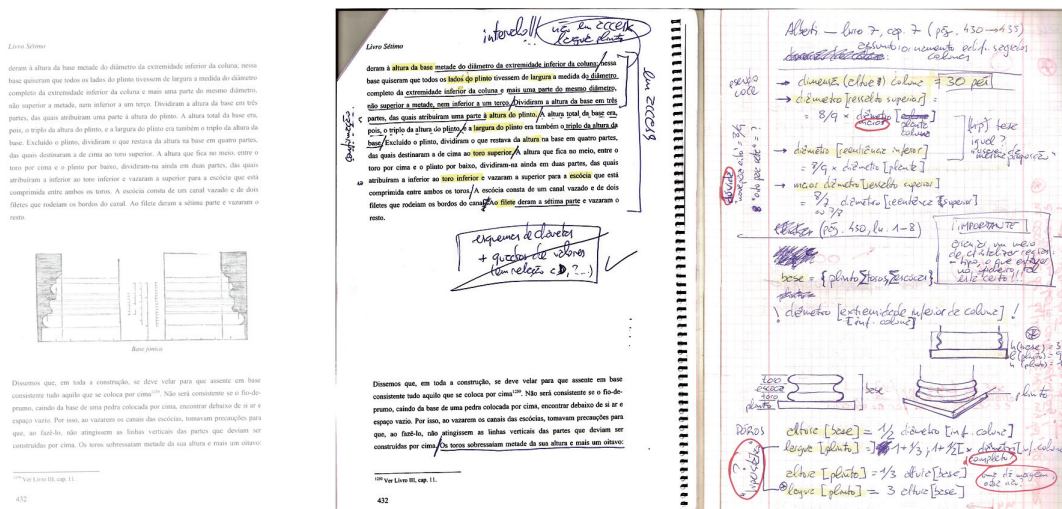 Livro Sétimo
deram à altura da base metade do diâmetro da extremidade inferior da coluna; nessa
base quiseram que todos os lados do plinto tivessem de largura a medida do diâmetro
completo da extremidade inferior da coluna e mais uma parte do mesmo diâmetro,
não superior a metade, nem inferior a um terço. Dividiram a altura da base em três
partes, das quais atribuíram uma à altura do plinto. A altura total da base era,
pois, o triplo da altura do plinto, e a largura do plinto era também o triplo da altura da
base. Excluído o plinto, dividiram o que restava da altura na base em quatro partes,
das quais destinaram a de cima ao toro superior. A altura que fica no meio, entre o
toro por cima e o plinto por baixo, dividiram-na ainda em duas partes, das quais
atribuíram a inferior ao toro inferior e vazaram a superior para a escócia que está
comprimida entre ambos os toros. A escócia consta de um canal vazado e de dois
filetes que rodeiam os bordos do canal. Ao filete deram a sétima parte e vazaram o
resto.
Base jónica
Dissemos que, em toda a construção, se deve velar para que assente em base
consistente tudo aquilo que se coloca por cima¹²⁹⁰. Não será consistente se o fio-de-
prumo, caindo da base de uma pedra colocada por cima, encontrar debaixo de si ar e
espaço vazio. Por isso, ao vazarem os canais das escócias, tomavam precauções para
que, ao fazê-lo, não atingissem as linhas verticais das partes que deviam ser
construídas por cima. Os toros sobressaíam metade da sua altura e mais um oitavo:
¹²⁹⁰ Ver Livro III, cap. 11.
432
intervalo!!! não em access
largura plinto
Livro Sétimo
deram à altura da base metade do diâmetro da extremidade inferior da coluna; nessa
base quiseram que todos os lados do plinto tivessem de largura a medida do diâmetro
completo da extremidade inferior da coluna e mais uma parte do mesmo diâmetro,
não superior a metade, nem inferior a um terço. Dividiram a altura da base em três
partes, das quais atribuíram uma à altura do plinto. A altura total da base era,
pois, o triplo da altura do plinto, e a largura do plinto era também o triplo da altura da
base. Excluído o plinto, dividiram o que restava da altura na base em quatro partes,
das quais destinaram a de cima ao toro superior. A altura que fica no meio, entre o
toro por cima e o plinto por baixo, dividiram-na ainda em duas partes, das quais
atribuíram a inferior ao toro inferior e vazaram a superior para a escócia que está
comprimida entre ambos os toros. A escócia consta de um canal vazado e de dois
filetes que rodeiam os bordos do canal. Ao filete deram a sétima parte e vazaram o
resto.
em access
esquemas de claretes
+ quadros de valores
(em relação a D, ?...)
Dissemos que, em toda a construção, se deve velar para que assente em base
consistente tudo aquilo que se coloca por cima¹²⁹⁰. Não será consistente se o fio-de-
prumo, caindo da base de uma pedra colocada por cima, encontrar debaixo de si ar e
espaço vazio. Por isso, ao vazarem os canais das escócias, tomavam precauções para
que, ao fazê-lo, não atingissem as linhas verticais das partes que deviam ser
construídas por cima. Os toros sobressaíam metade da sua altura e mais um oitavo:
¹²⁹⁰ Ver Livro III, cap. 11.
432
Alberti — livro 7, cap. 7 (pág. 430 → 435)
assunto: ornamento edif. sagrados
colunas
→ dimensã (altura) coluna = 30 pés
→ diâmetro [ressalto superior] =
= 8/9 × diâmetro
→ diâmetro [reentrância inferior]
= 7/9 × diâmetro [plinto]
→ meios diâmetro [ressalto superior]
= 8/7 diâmetro [reentrância superior]
ou 7/8
dúvida
(pág. 430, ln. 1-8)
IMPORTANTE
base = {plinto, toros, escócias}
! diâmetro [extremidade inferior da coluna] !
[inf. coluna]
toro
escócia
toro
plinto
base
plinto
DÓROS
altura [base] = 1/2 diâmetro [inf. coluna]
largura [plinto] = 1+1/3 ; 1+1/2 [× diâmetro [inf. coluna]
completo?
altura [plinto] = 1/3 altura [base]
largura [plinto] = 3 altura [base]